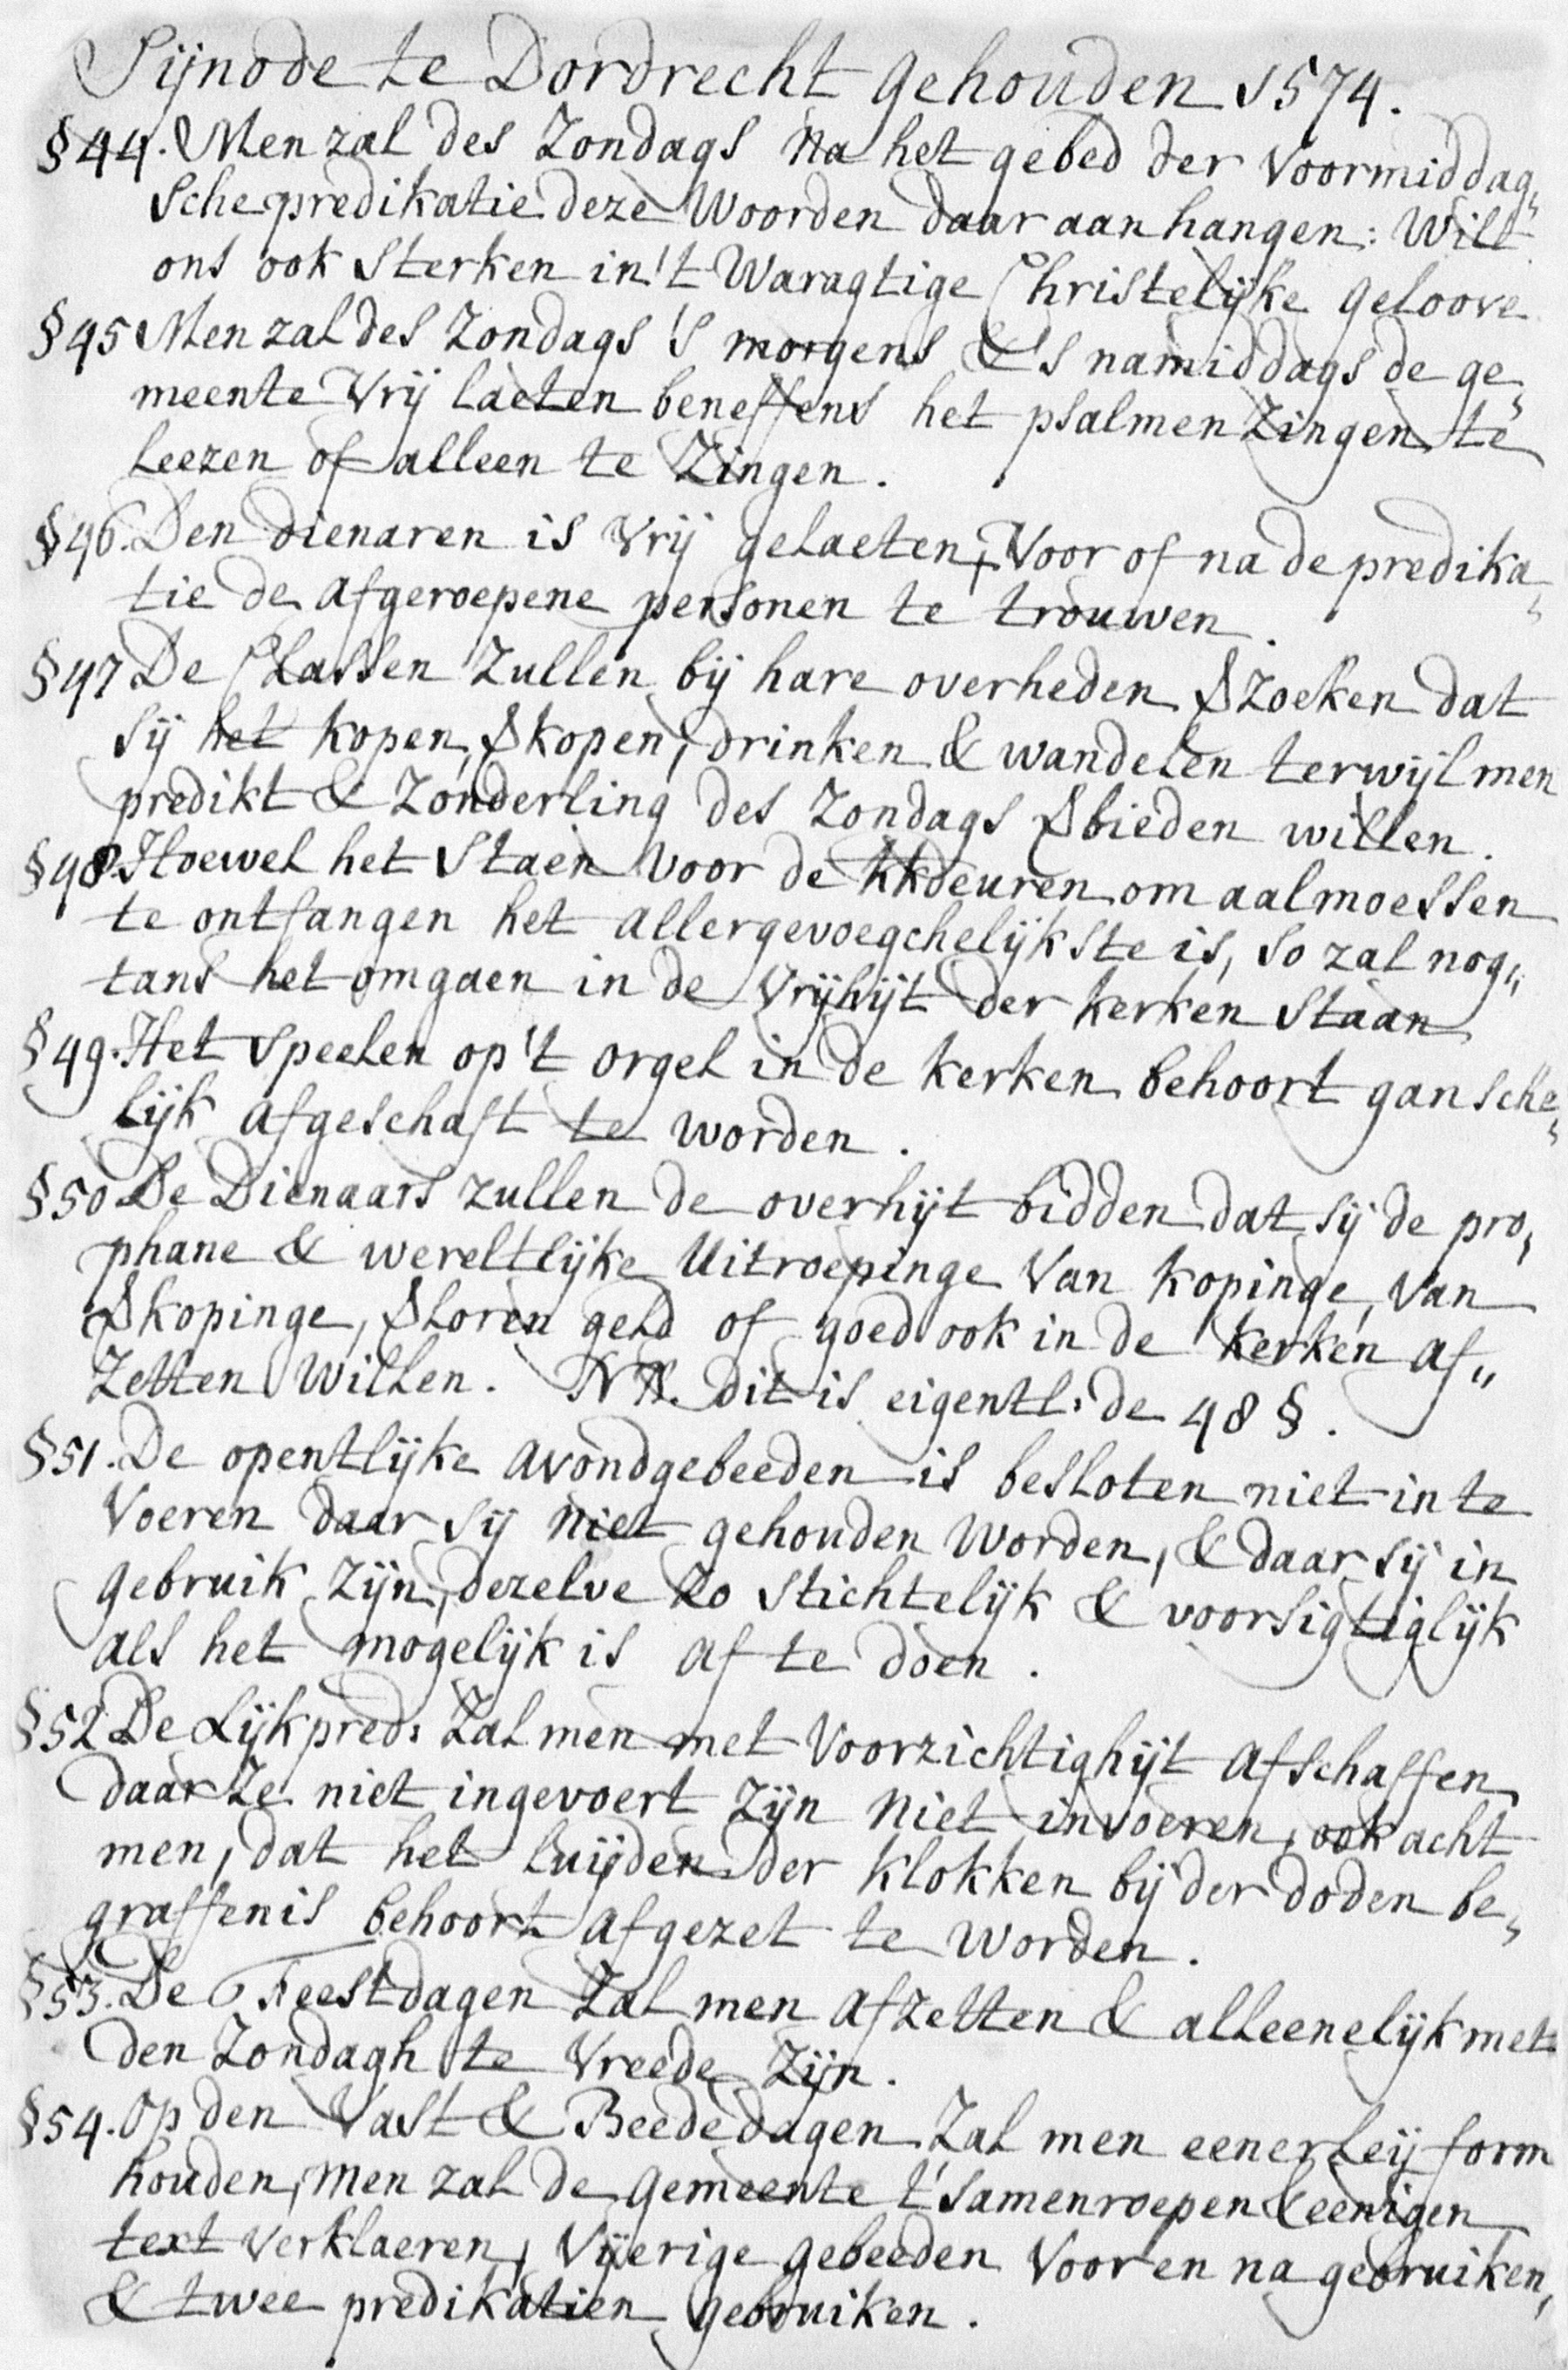 Sijnode te Dordrecht gehouden 1574.
§44. Men zal des Zondags na het gebed der Voormiddag„
sche predikatie deze Woorden daar aan hangen: Wilt
ons ook Sterken in 't Waragtige Christelijke geloove
§45 Men zal des Zondags 's morgens & 's namiddags de ge„
meente Vrij laeten beneffens het psalmen Zingen te
Leezen of alleen te Zingen.
§46. Den dienaren is Vrij gelaeten, Voor of na de predika„
tie de afgeroepene personen te trouwen.
§47 De Classen Zullen bij hare overheden Szoeken dat
sij het kopen, Skopen, drinken & wandelen terwijl men
predikt & Zonderling des Zondags Sbieden willen.
§48. Hoewel het Staen Voor de kkdeuren om aalmoessen
te ontfangen het allergevoegchelijkste is, so zal nog„
tans het omgaen in de Vrijhijt der kerken Staan
§49. Het Speelen op 't orgel in de kerken behoort gansche„
lijk afgeschaft te worden.
§50 De Dienaars zullen de overhijt bidden dat sij de pro„
phane & wereltlijke Uitroepinge Van kopinge, Van
Skopinge, Sloren geld of goed ook in de kerken af„
Zetten Willen. NB. dit is eigentl: de 48 §.
§51. De opentlijke avondgebeeden is besloten niet in te
Voeren daar sij niet gehouden Worden, & daar sij in
gebruik Zijn, dezelve Zo Stichtelijk & voorsigtiglijk
als het mogelijk is af te doen.
§52 De Lijkpred: Zal men met Voorzichtighijt afschaffen
daar Ze niet ingevoert Zijn niet invoeren, ook acht
men, dat het luijden der klokken bij der doden be„
graffenis behoort afgezet te worden.
§53. De Feestdagen Zal men afzetten & alleenelijk met
den Zondagh te Vreede Zijn.
§54. Op den Vast & Beededagen Zal men eenerleij form
houden, Men zal de gemeente t'samenroepen & eenigen
text Verklaeren, Vijerige gebeeden Voor en na gebruiken,
& twee predikatien gebruiken.